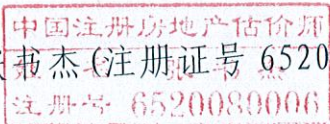 中国注册房地产估价师
书杰(注册证号 6520
注册号 6520080006